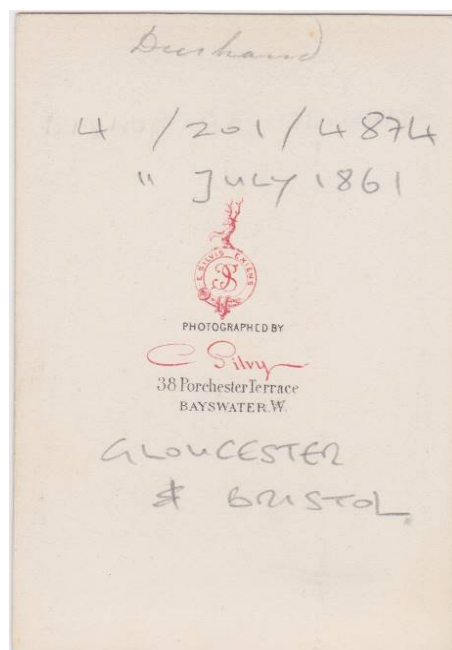 4 /201/4874
" JULY 1861
E SILVIS EXIENS
PHOTOGRAPHED BY
C Silvy
38 Porchester Terrace
BAYSWATER. W.
GLOUCESTER
& BRISTOL.